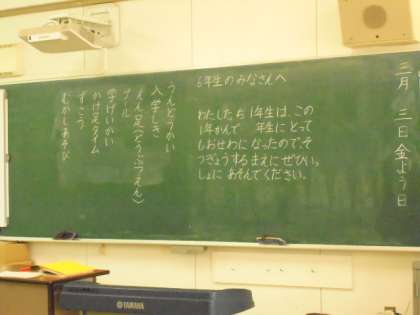 三月 三日 金よう日
6年生のみなさんへ
わたしたち1年生は、この
1年かんで 年生にとって
もおせわに なったので、そ
つぎょうする まえに ぜひいっ
しょに あそんでください。
うんどうかい
入学しき
えん足(どうぶつえん)
プール
学げいかい
かけ足タイム
ずこう
むかしあそび
YAMAHA